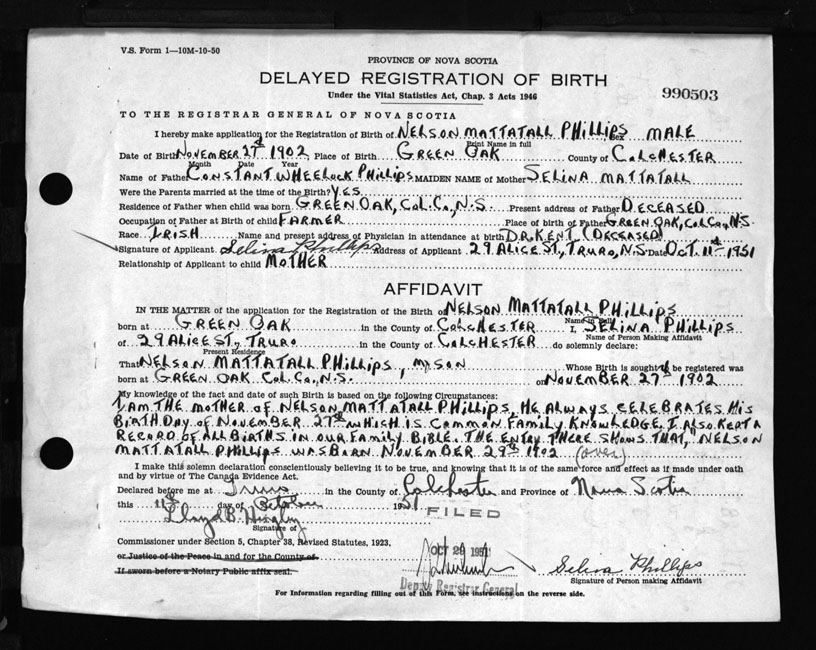 V.S. Form 1—10M-10-50
PROVINCE OF NOVA SCOTIA
DELAYED REGISTRATION OF BIRTH
Under the Vital Statistics Act, Chap. 3 Acts 1946
990503
TO THE REGISTRAR GENERAL OF NOVA SCOTIA
I hereby make application for the Registration of Birth of NELSON MATTATALL PHILLIPS Sex MALE
Print Name in full
Date of Birth NOVEMBER 27th 1902 Place of Birth GREEN OAK County of COLCHESTER
Month Date Year
Name of Father CONSTANT WHEELOCK PHILLIPS MAIDEN NAME of Mother SELINA MATTATALL
Were the Parents married at the time of the Birth? YES
Residence of Father when child was born GREEN OAK, COL. CO., N.S. Present address of Father DECEASED
Occupation of Father at Birth of child FARMER Place of birth of Father GREEN OAK, COL CO, N.S.
Race IRISH Name and present address of Physician in attendance at birth DR. KENT (DECEASED)
Signature of Applicant Selina Phillips Address of Applicant 29 ALICE ST., TRURO, N.S. Date OCT. 11th 1951
Relationship of Applicant to child MOTHER
AFFIDAVIT
IN THE MATTER of the application for the Registration of the Birth of NELSON MATTATALL PHILLIPS
Name in full
born at GREEN OAK in the County of COLCHESTER I, SELINA PHILLIPS
Name of Person Making Affidavit
of 29 ALICE ST., TRURO in the County of COLCHESTER do solemnly declare:
Present Residence
That NELSON MATTATALL PHILLIPS, MY SON Whose Birth is sought to be registered was
born at GREEN OAK COL. CO., N.S. on NOVEMBER 27th 1902
My knowledge of the fact and date of such Birth is based on the following Circumstances:
I AM THE MOTHER OF NELSON MATTATALL PHILLIPS, HE ALWAYS CELEBRATES HIS
BIRTH DAY OF NOVEMBER 27th WHICH IS COMMON FAMILY KNOWLEDGE. I ALSO KEPT A
RECORD OF ALL BIRTHS IN OUR FAMILY BIBLE. THE ENTRY THERE SHOWS THAT, NELSON
MATTATALL PHILLIPS WAS BORN NOVEMBER 29th 1902 (over)
I make this solemn declaration conscientiously believing it to be true, and knowing that it is of the same force and effect as if made under oath
and by virtue of The Canada Evidence Act.
Declared before me at Truro in the County of Colchester and Province of Nova Scotia
this 11th day of October 1951
FILED
Lloyd B.
Signature of
Commissioner under Section 5, Chapter 38, Revised Statutes, 1923.
or Justice of the Peace in and for the County of
If sworn before a Notary Public affix seal.
OCT 29 1951
Deputy Registrar General
Selina Phillips
Signature of Person making Affidavit
For Information regarding filling out of this Form, see instructions on the reverse side.